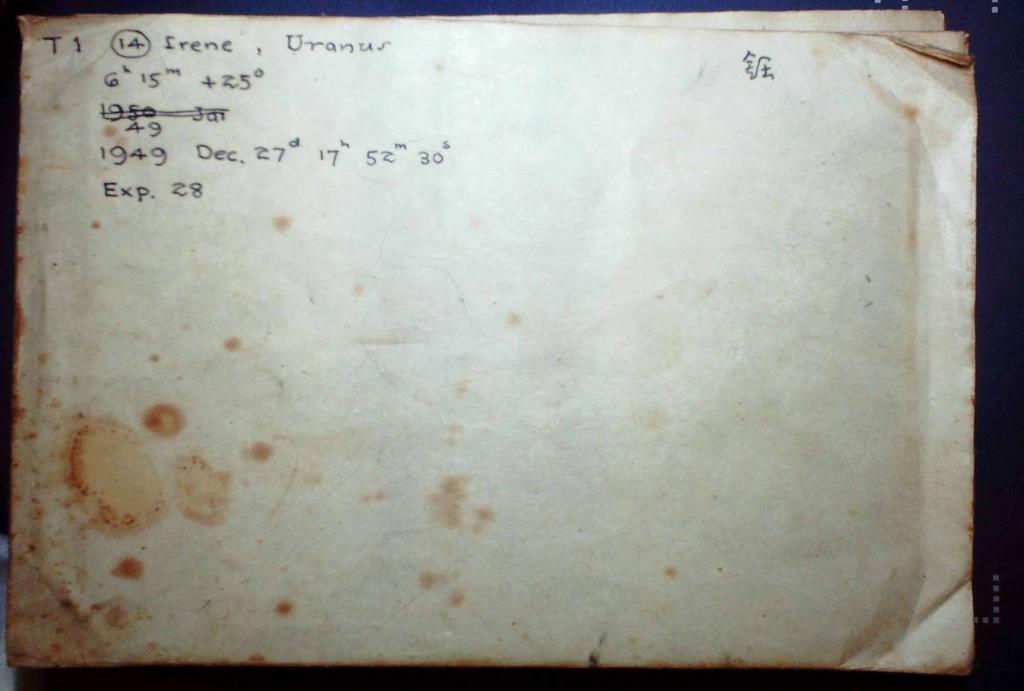 T 1 ⑭ Irene, Uranus
6ʰ 15ᵐ +25°
1950 Jan
49
1949 Dec. 27ᵈ 17ʰ 52ᵐ 30ˢ
Exp. 28